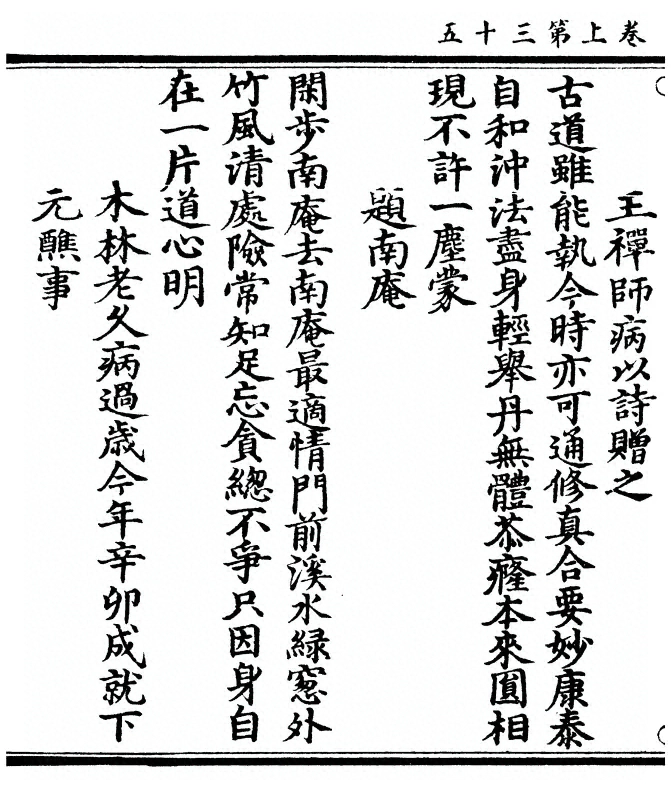 卷上第三十五
王禪師病以詩贈之
古道雖能執今時亦可通修真合要妙康泰
自和沖法盡身輕舉丹無體癃本來圎相
現不許一塵蒙
題南庵
閑步南庵去南庵最適情門前溪水緑窻外
竹風清處險常知足忘貪緫不爭只因身自
在一片道心明
木林老久病過歲今年辛卯成就下
元醮事